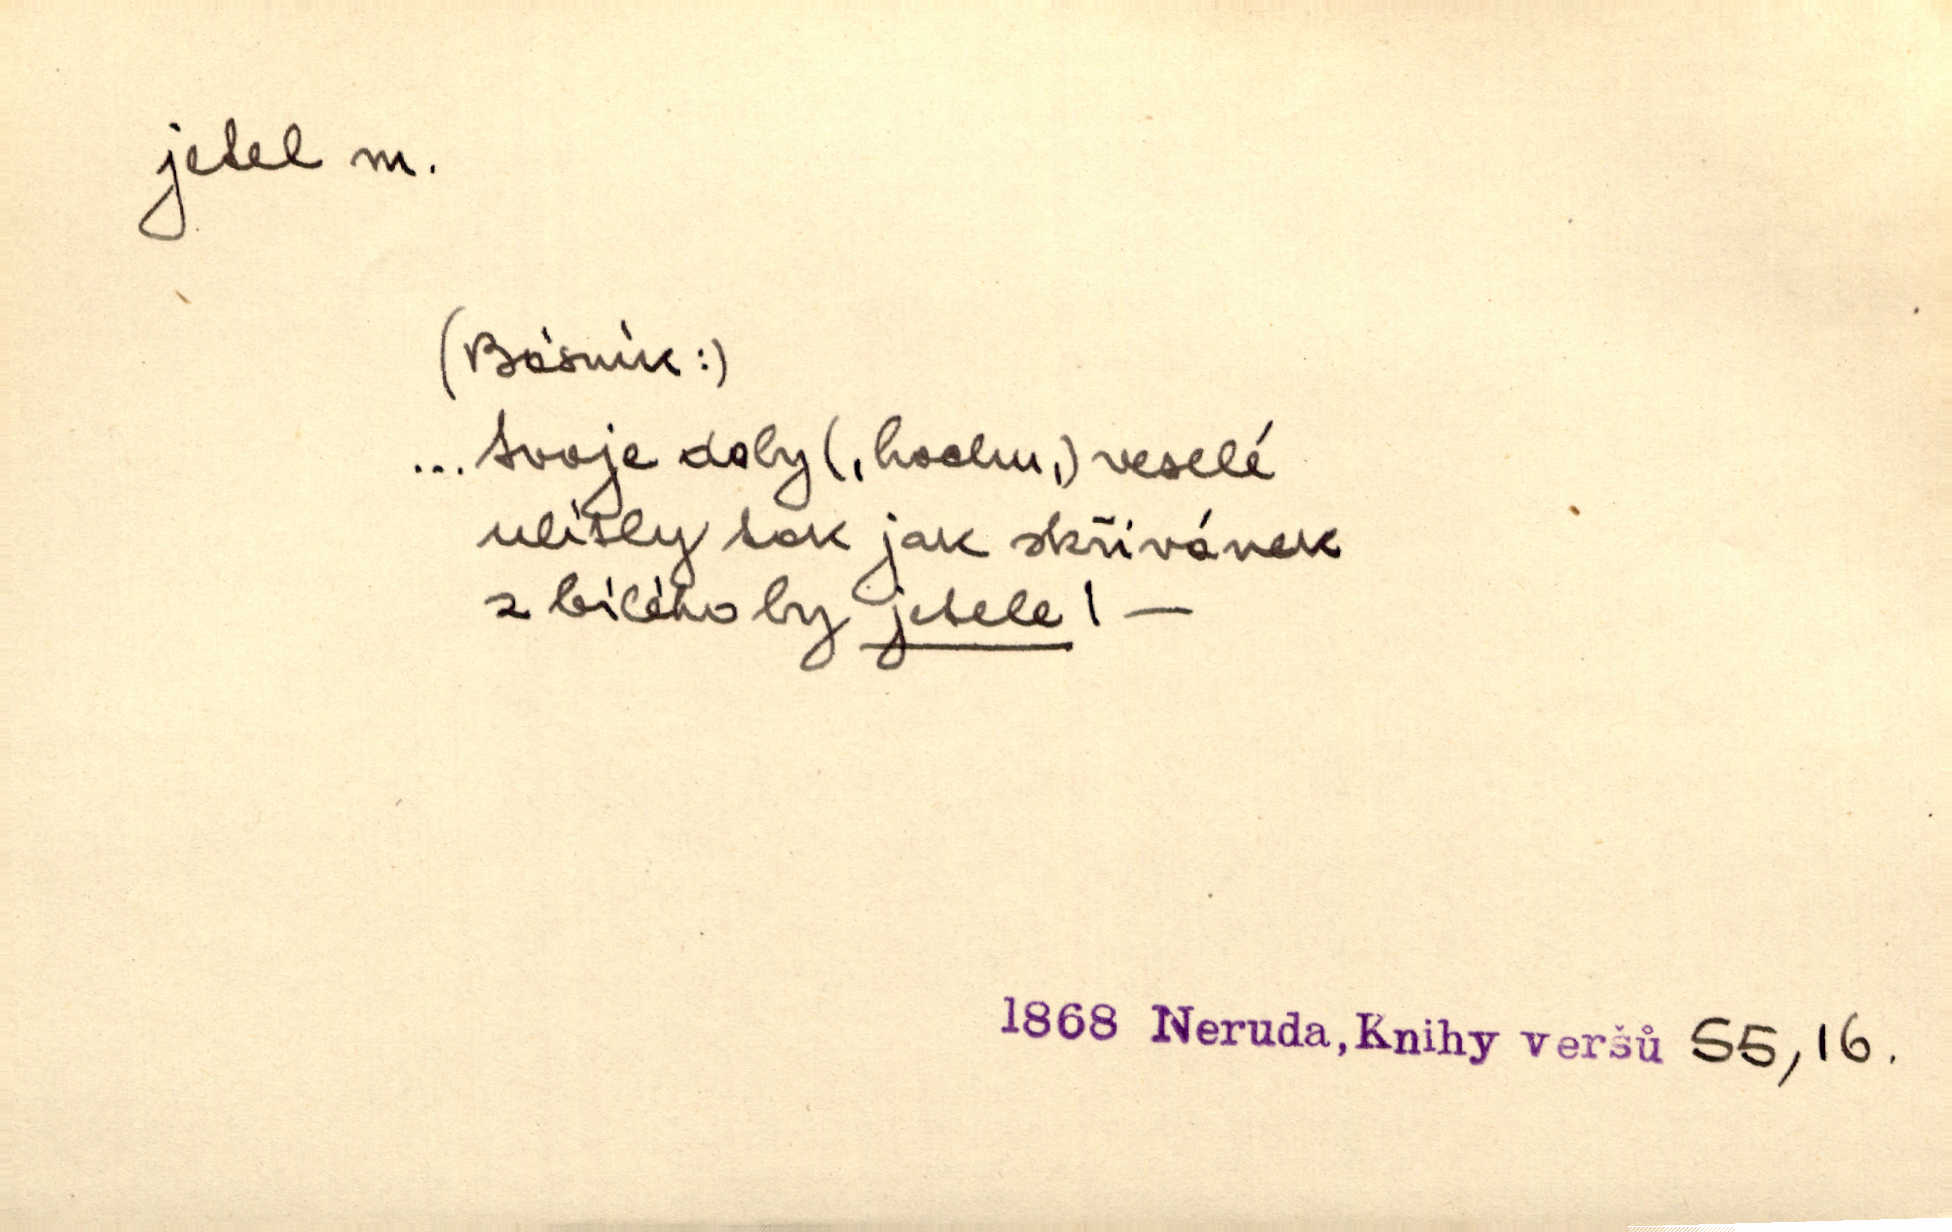 jetel m.
(Básník:)
... tvoje doby (, hochu,) veselé
ulítly tak jak skřivánek
z bílého by jetele! —
1868 Neruda, Knihy veršů 55, 16.